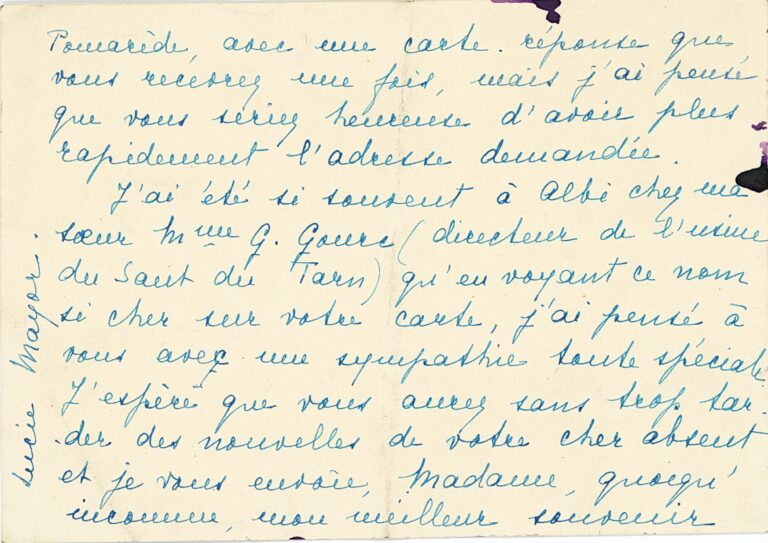 Pomarède, avec une carte. réponse que
vous recevrez une fois, mais j'ai pensé
que vous seriez heureuse d'avoir plus
rapidement l'adresse demandée.
J'ai été si souvent à Albi chez ma
sœur Mme G. Gourc (directeur de l'usine
du Saut du Tarn) qu'en voyant ce nom
si cher sur votre carte, j'ai pensé à
vous avec une sympathie toute spéciale
J'espère que vous aurez sans trop tar-
-der des nouvelles de votre cher absent
et je vous envoie, Madame, quoiqu'
inconnue, mon meilleur souvenir
Lucie Mayor.